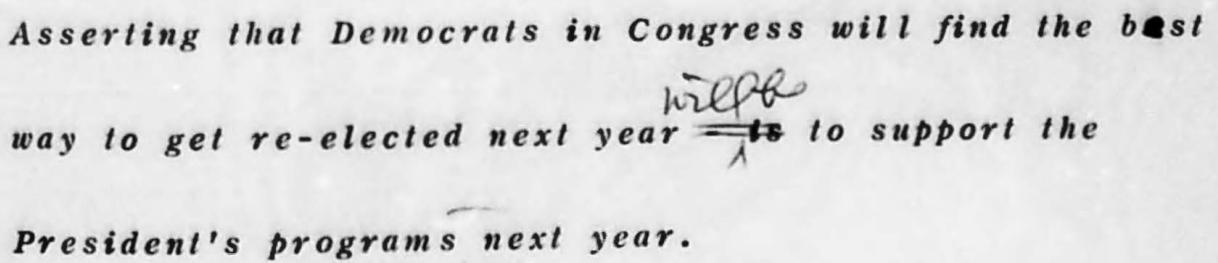 Asserting that Democrats in Congress will find the best
will be
way to get re-elected next year is to support the
President's programs next year.